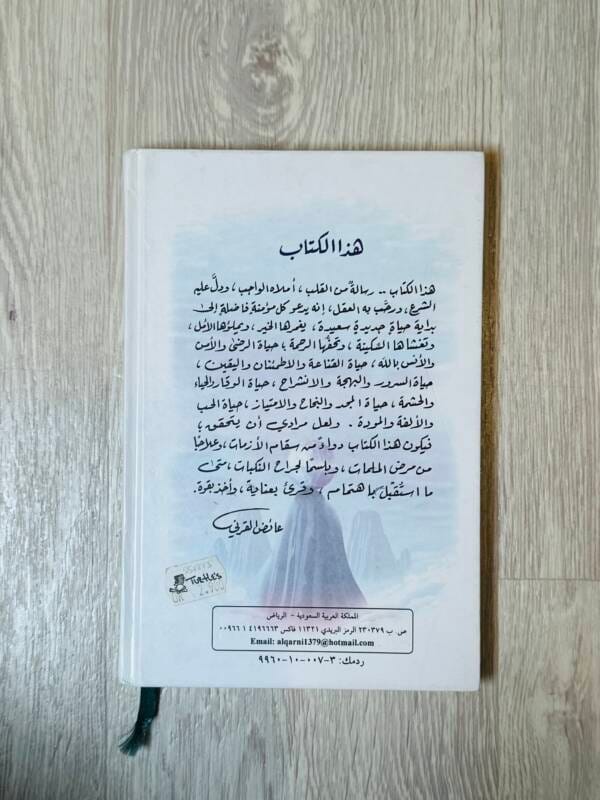 هذا الكتاب
هذا الكتاب .. رسالةٌ من القلب ، أملاه الواجب ، ودلَّ عليه
الشرع ، ورحَّب به العقل ، إنه يدعو كل مؤمنةٍ فاضلةٍ إلى
بداية حياةٍ جديدةٍ سعيدة ، يغمرها الخير ، ويملؤها الأمل ،
وتغشاها السَّكينة ، وتحفُّها الرحمة ، حياة الرضى والأمن
والأنس بالله ، حياة القناعة والاطمئنان واليقين ،
حياة السرور والبهجة والانشراح ، حياة الوقار والحياء
والحشمة ، حياة المجد والنجاح والامتياز ، حياة الحب
والألفة والمودة . ولعل مرادي أن يتحقق ،
فيكون هذا الكتاب دواءً من سقام الأزمات ، وعلاجًا
من مرض الملمات ، وبلسمًا لجراح النكبات ، متى
ما استُقبل باهتمام ، وقُرئ بعناية ، وأُخذ بقوة .
عائض القرني
TURTLE'S
المملكة العربية السعودية - الرياض
ص. ب ٢٣٠٣٧٩ الرمز البريدي ١١٣٢١ فاكس ٤١٩٦٦٦٣ ١ ٠٠٩٦٦
Email: alqarni1379@hotmail.com
ردمك: ٣-٠٠٧-١٠-٩٩٦٠